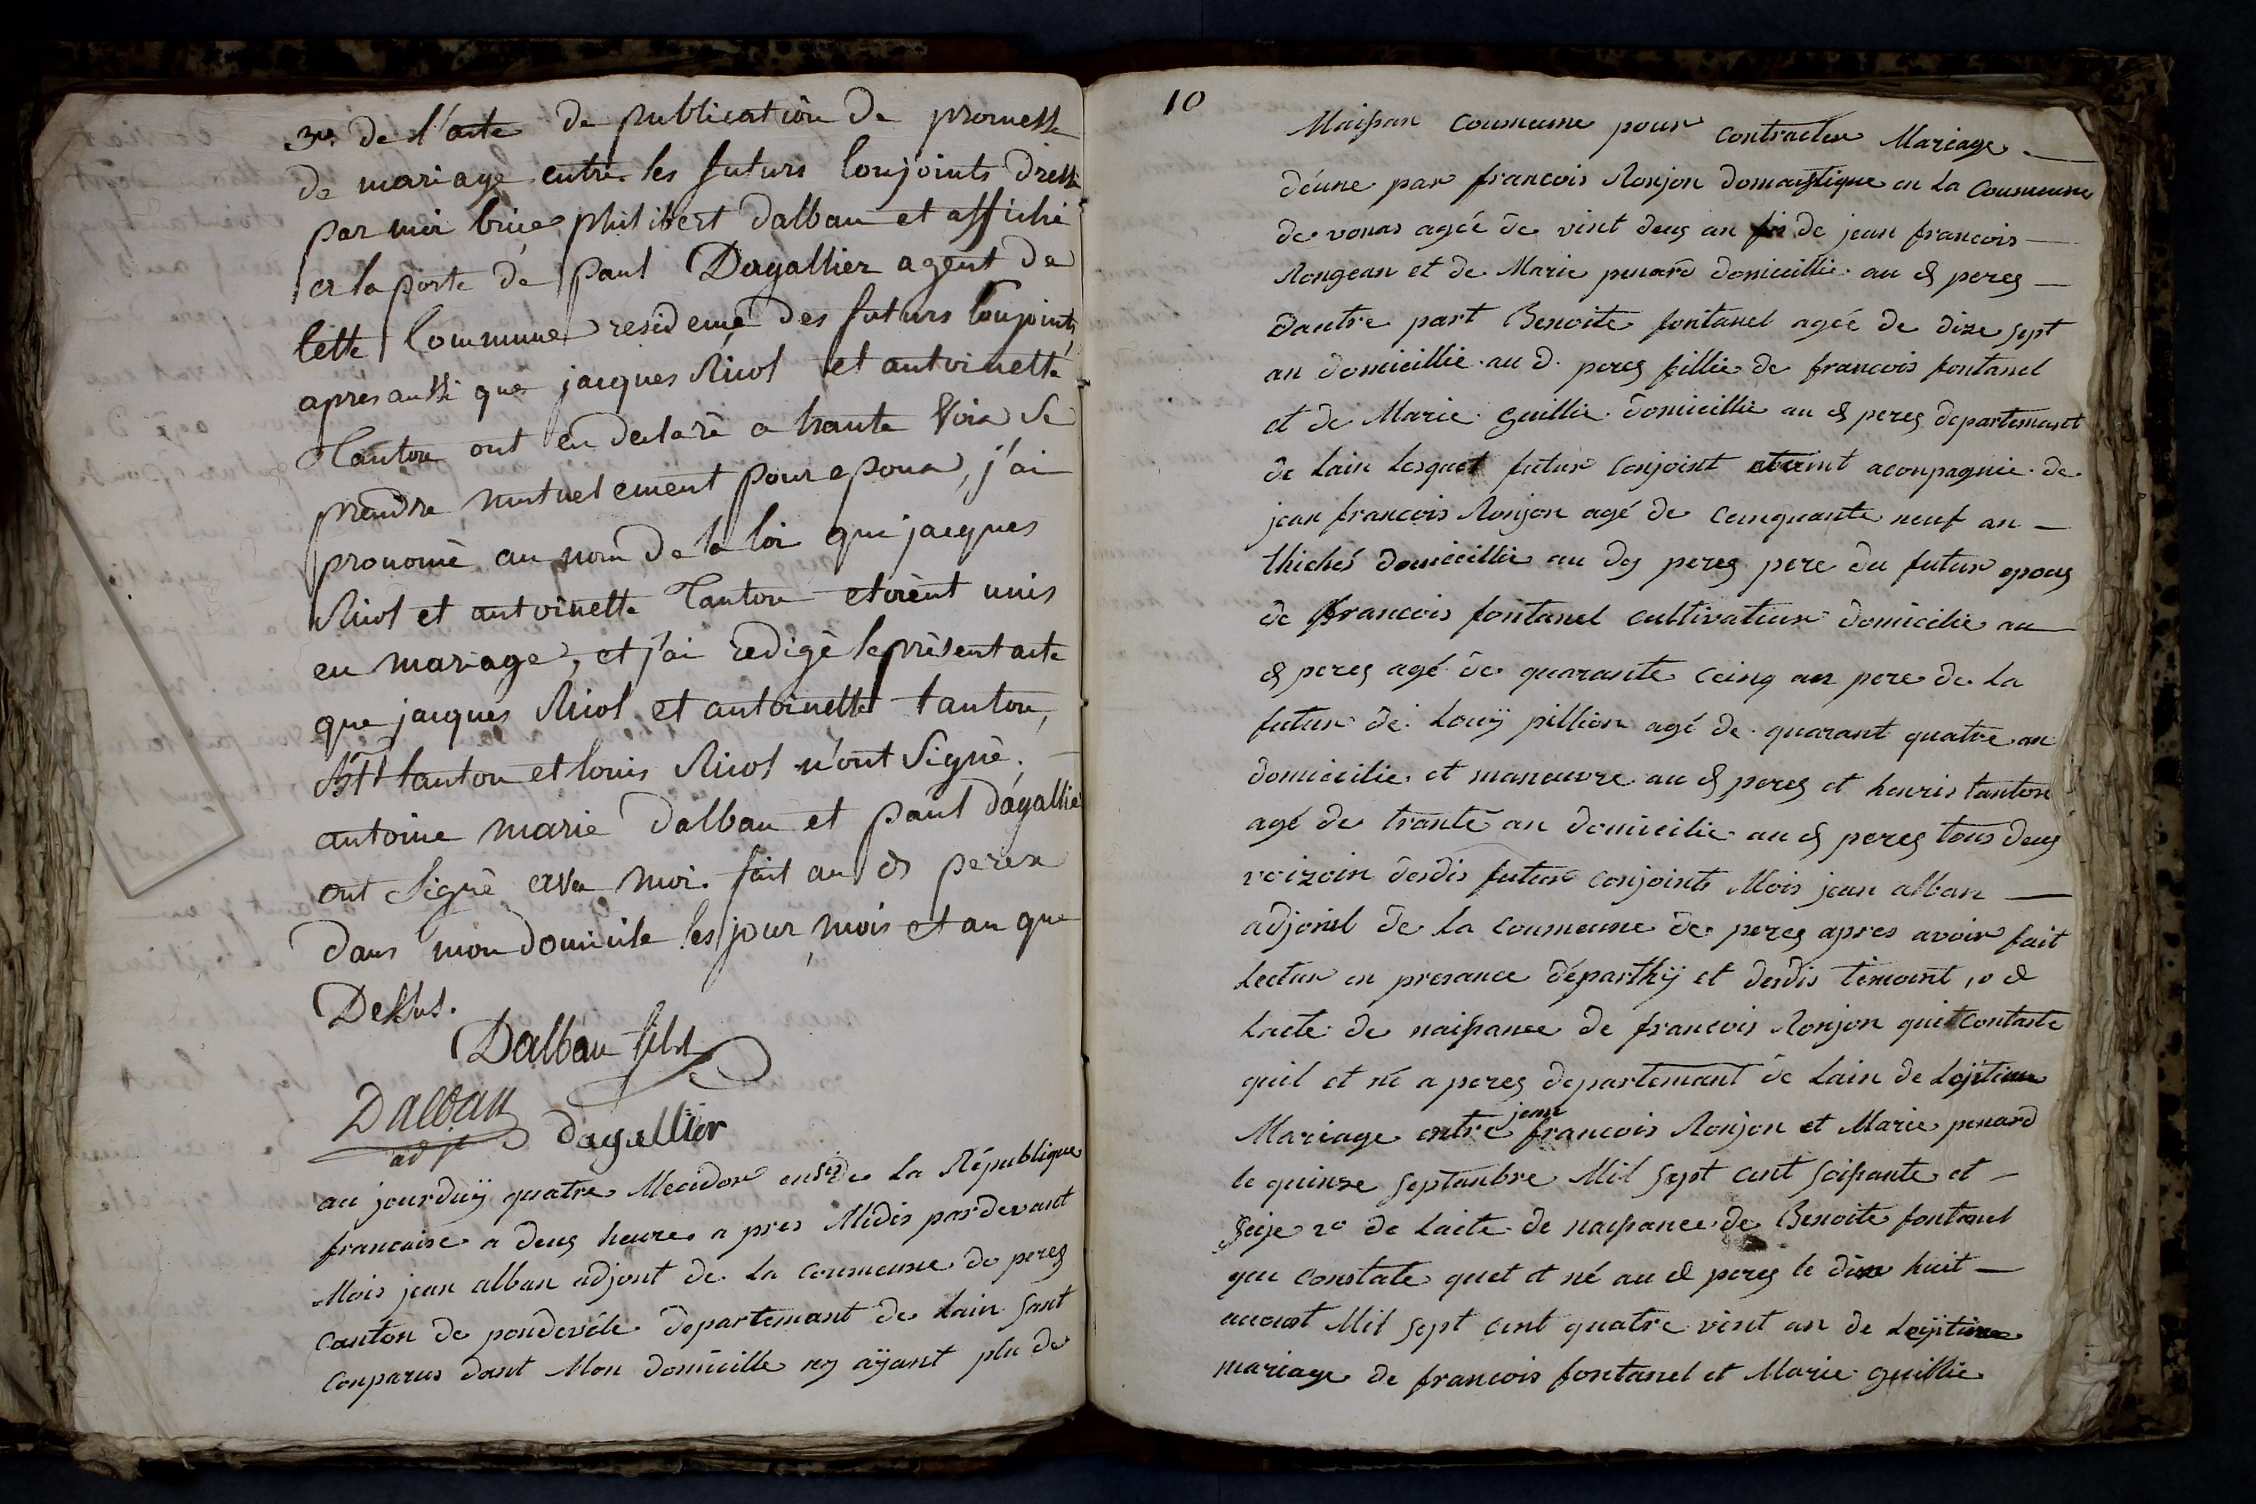 3º. de l'acte de publication de promesse
de mariage entre les futurs Conjoints dressé
par moi brice philibert dalban et affiché
a la porte de paul Dagallier agent de
Cette Commune residence des futurs Conjoints,
apres aussi que jacques Nicol et antoinette
Tanton ont eu declaré a haute Voix se
prendre mutuelement pour epoux, j'ai
prononcé au nom de la loi que jacques
Nicol et antoinette Tanton etoient unis
en mariage, et j'ai redigé le présent acte
que jacques Nicol et antoinette tanton,
tanton et louis Nicol n'ont Signé.
antoine marie dalban et paul dagallier
ont Signé avec moi. fait au ds perex
dans mon domicile les jour, mois et an que
Dessus.
Dalban fils
Dalban
adjt dagallier
au jourduÿ quatre Mecidor ensix de La République
francaise a deus heure a pres Midis pardevant
Mois jean alban adjont de La coumeune de peres
Canton de pondevele departemant de Lain sont
Conparus dant Mon domicille ny aÿant plu de
10
Maisson Coumeune pour Contracter Mariage
déune par francois Ronjon domaistique en La Coumeune
de vonas ageé de vint deus an fis de jean francois
Rongean et de Marie penard domicillié au d peres
dautre part Benoite fontanel ageé de dixe sept
an domicillie au d. peres fillie de francois fontanel
et de Marie Guillie domicillie au d peres departemant
de Lain Lesquet futur Conjoint etoint aconpagnie de
jean francois Ronjon agé de Cenquante neuf an
thichés domicillie au ds peres pere du futur epous
de francois fontanel cultivateur domicilie au
d peres agé de quarante Ceinq an pere de La
futur de Louÿ pillion agé de quarant quatre an
domicilie et maneuvre au d peres et henris tanton
agé de trante an domicilie au d peres tous deus
voizoin desdis futur conjoints Mois jean alban
adjoint de La coumeune de peres apres avoir fait
Lectur en presance départhÿ et desdis temoint, 1º d
Lacte de naissance de francois Ronjon quit Contaste
quil et né a peres departemant de Lain de Lejitime
Mariage entre jean francois Ronjon et Marie penard
le quinze septanbre Mil sept cent soissante et
seije 2º de Lacte de naissance de Benoite fontanel
qeu constate quet et né au d peres le dixe huit
auoust Mil sept cent quatre vint an de Lejitime
mariage de francois fontanel et Marie Guillie